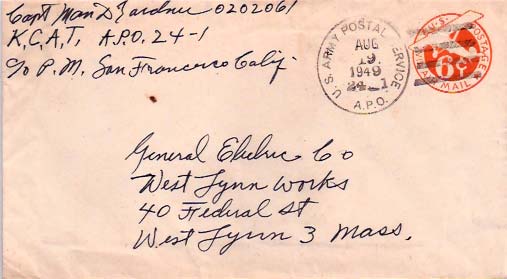 Capt Man D Gardner 0202061
K.C.A.T. A.P.O. 24-1
c/o P.M. San Francisco Calif.
U.S. ARMY POSTAL SERVICE
AUG
19
1949
24-1
A.P.O.
U.S. POSTAGE
6¢
AIR MAIL
General Electric Co
West Lynn Works
40 Federal St
West Lynn 3 Mass.